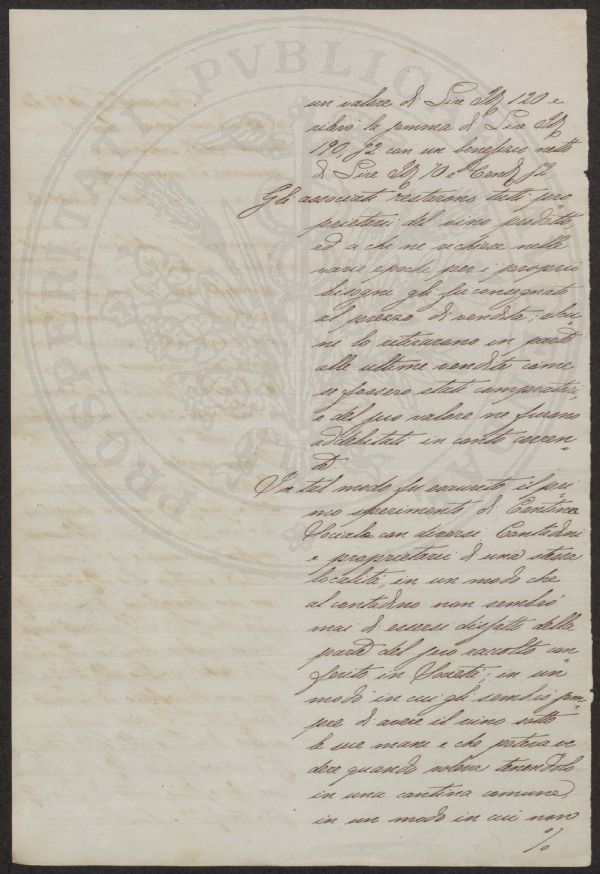 un valore di Lire 120 e
rilevò la somma di Lire
190,72 con un beneficio netto
di Lire 70 e Cent 72.
Gli associati restarono tutti pro
prietari del vino prodotto
ed a chi ne richiese nelle
varie epoche per i proprii
bisogni gli fu consegnato
al prezzo di vendita; alcu
ni lo ritirarono in parte
alle ultime vendite come
se fossero stati compratori
e del suo valore ne furono
addebitati in conto corren
te
In tal modo fu eseguito il pri
mo sperimento di Cantina
Sociale con diversi Contadini
e proprietarii di una stessa
località, in un modo che
al contadino non sembrò
mai di essersi disfatto della
parte del suo raccolto con
ferito in Società; in un
modo in cui gli sembrò sem
pre di avere il vino sotto
le sue mani e che poteva ve
dere quando voleva tenendolo
in una cantina comune,
in un modo in cui non
%
PROSPERITATI PVBLICAE